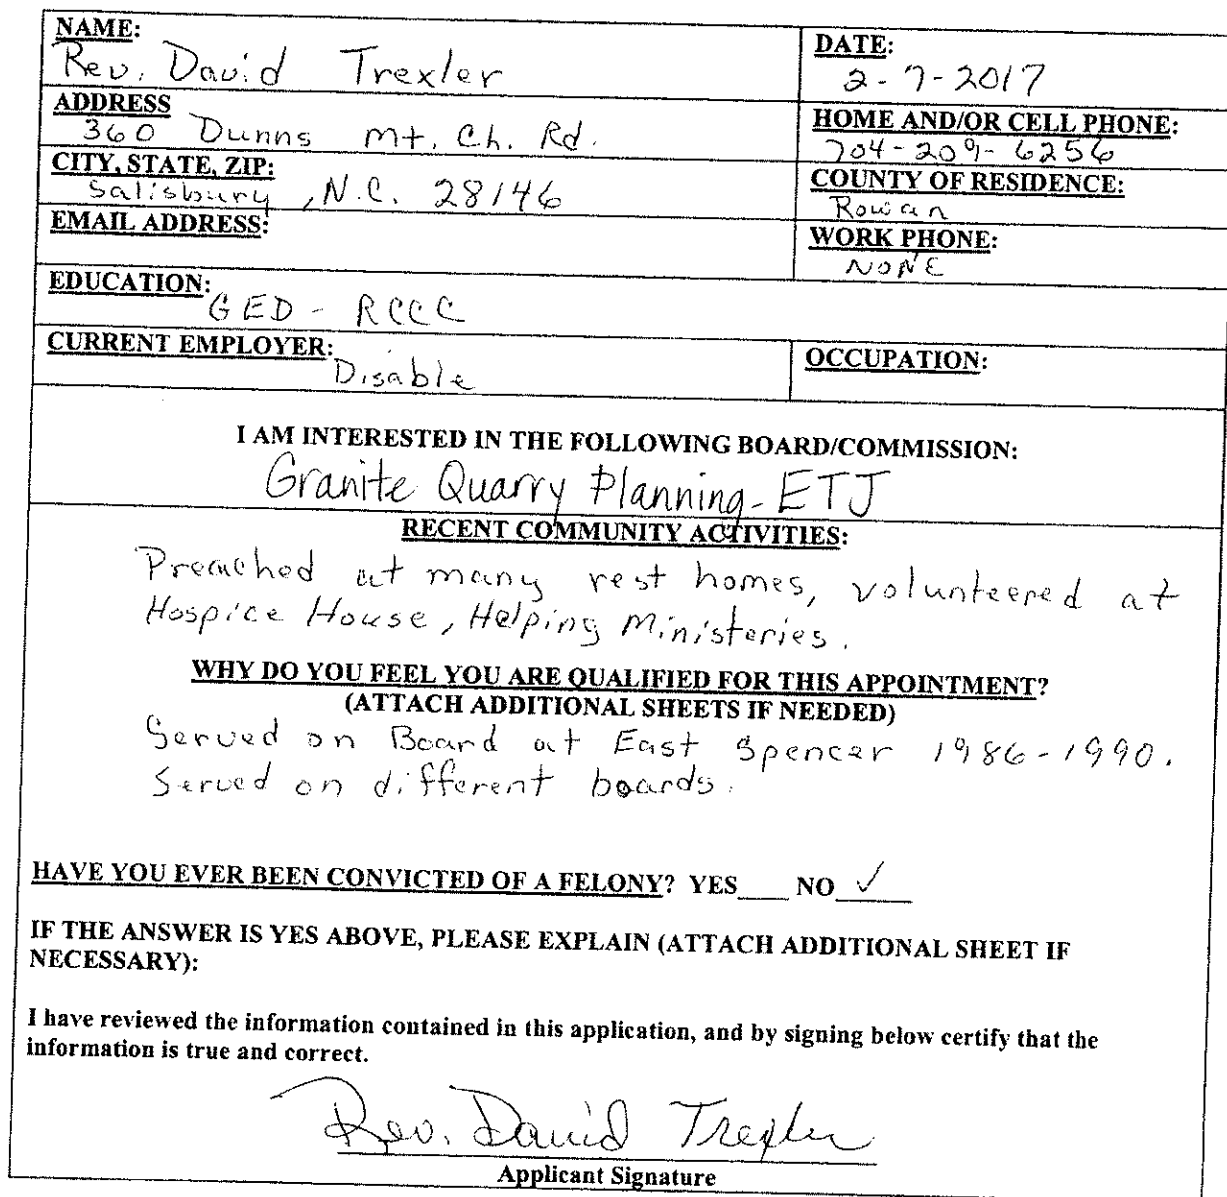 NAME:
Rev. David Trexler
DATE:
2-7-2017
ADDRESS
360 Dunns Mt. Ch. Rd.
HOME AND/OR CELL PHONE:
704-209-6256
CITY, STATE, ZIP:
Salisbury, N.C. 28146
COUNTY OF RESIDENCE:
Rowan
EMAIL ADDRESS:
WORK PHONE:
NONE
EDUCATION:
GED - RCCC
CURRENT EMPLOYER:
Disable
OCCUPATION:
I AM INTERESTED IN THE FOLLOWING BOARD/COMMISSION:
Granite Quarry Planning-ETJ
RECENT COMMUNITY ACTIVITIES:
Preached at many rest homes, volunteered at
Hospice House, Helping Ministeries.
WHY DO YOU FEEL YOU ARE QUALIFIED FOR THIS APPOINTMENT?
(ATTACH ADDITIONAL SHEETS IF NEEDED)
Served on Board at East Spencer 1986-1990.
Served on different boards.
HAVE YOU EVER BEEN CONVICTED OF A FELONY? YES___ NO ✓
IF THE ANSWER IS YES ABOVE, PLEASE EXPLAIN (ATTACH ADDITIONAL SHEET IF
NECESSARY):
I have reviewed the information contained in this application, and by signing below certify that the
information is true and correct.
Rev. David Trexler
Applicant Signature